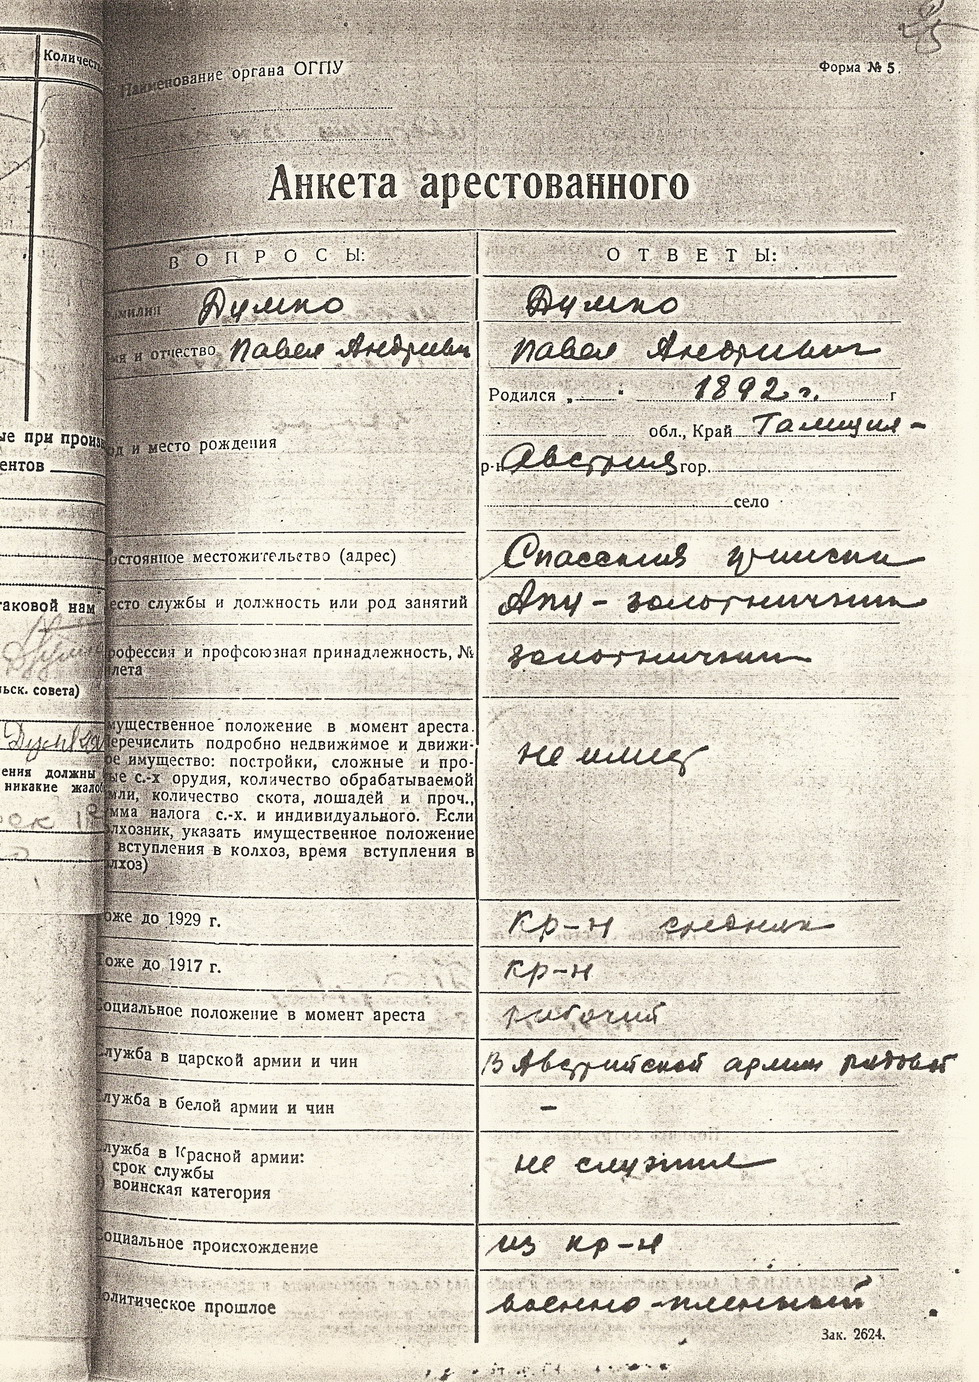 Количест
Форма № 5.
Наименование органа ОГПУ
Анкета арестованного
ВОПРОСЫ: ОТВЕТЫ:
амилия Думко Думко
мя и отчество Павел Андриевич Павел Андриевич
Родился „ “ 1892 г. г
обл., Край Галиция -
од и место рождения
р-н Австрия гор.
село
остоянное местожительство (адрес) Спасский прииск
есто службы и должность или род занятий - золотничник
рофессия и профсоюзная принадлежность, № золотничник
лета
мущественное положение в момент ареста. не имеет
еречислить подробно недвижимое и движи-
ое имущество: постройки, сложные и про-
ые с.-х орудия, количество обрабатываемой
мли, количество скота, лошадей и проч.,
мма налога с.-х. и индивидуального. Если
лхозник, указать имущественное положение
вступления в колхоз, время вступления в
лхоз)
оже до 1929 г. кр-н средняк
Тоже до 1917 г. кр-н
Социальное положение в момент ареста рабочий
Служба в царской армии и чин В Австрийской армии рядовой
Служба в белой армии и чин -
лужба в Красной армии: не служил
срок службы
) воинская категория
Социальное происхождение из кр-н
Политическое прошлое военно-пленный
Зак. 2624.
ые при произв
ентов
таковой нам
ьск. совета)
ения должны
никакие жалоб